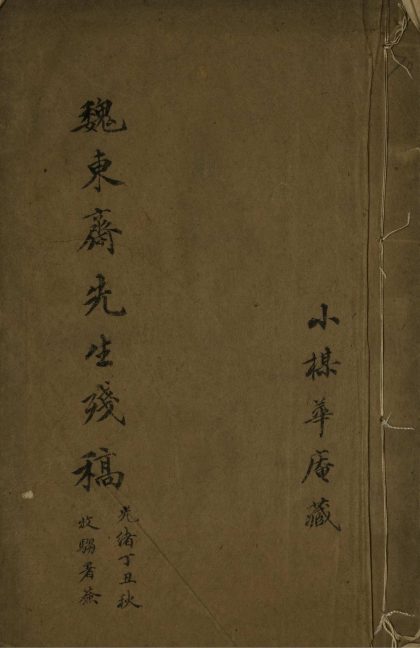 小槑華庵藏
魏東齋先生殘稿
光緒丁丑秋
牧騶署㑹